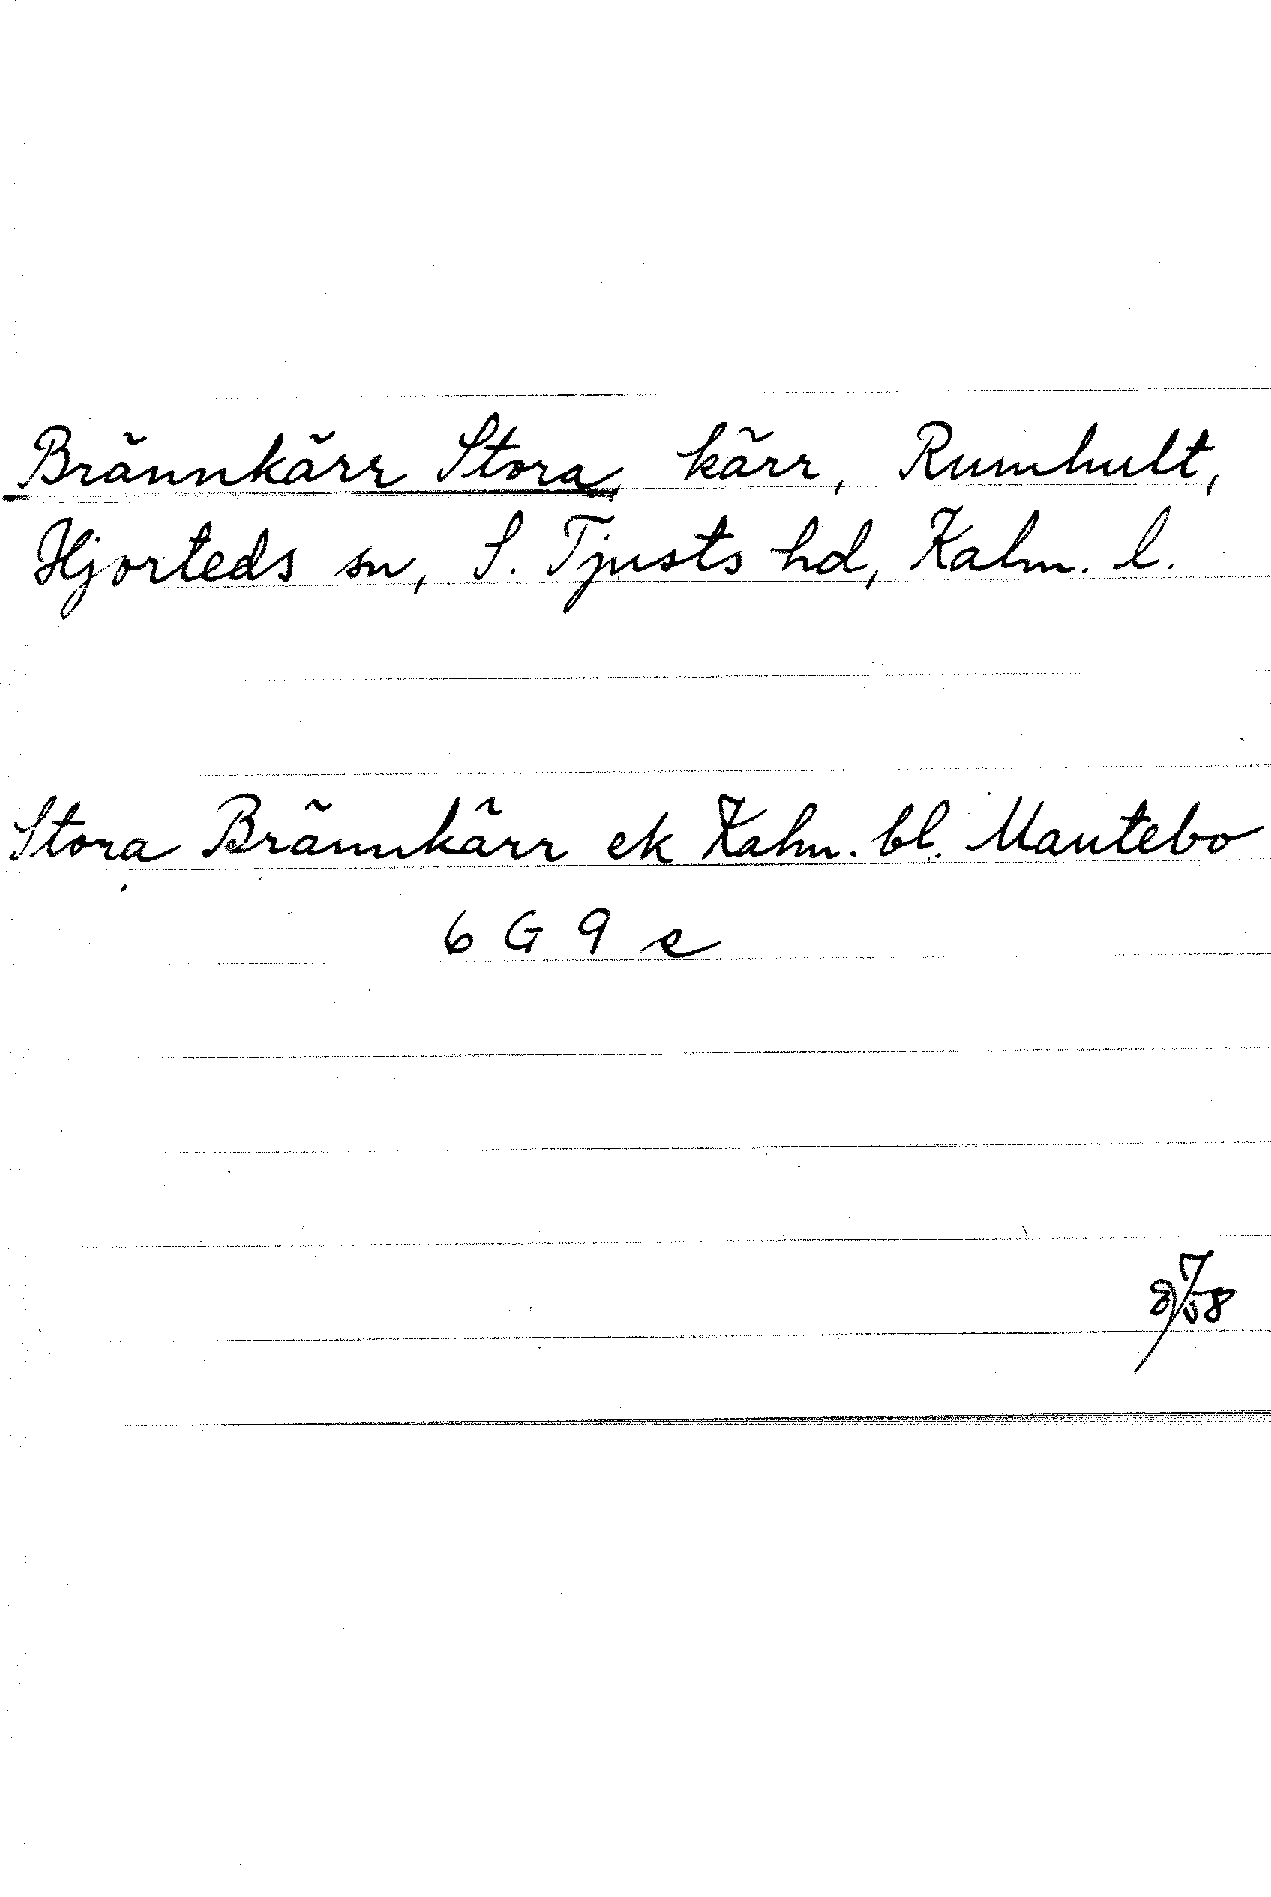 Brännkärr Stora, kärr, Rumhult,
Hjorteds sn, S. Tjusts hd, Kalm. l.
Stora Brännkärr ek Kalm. bl. Mantebo
6 G 9 e